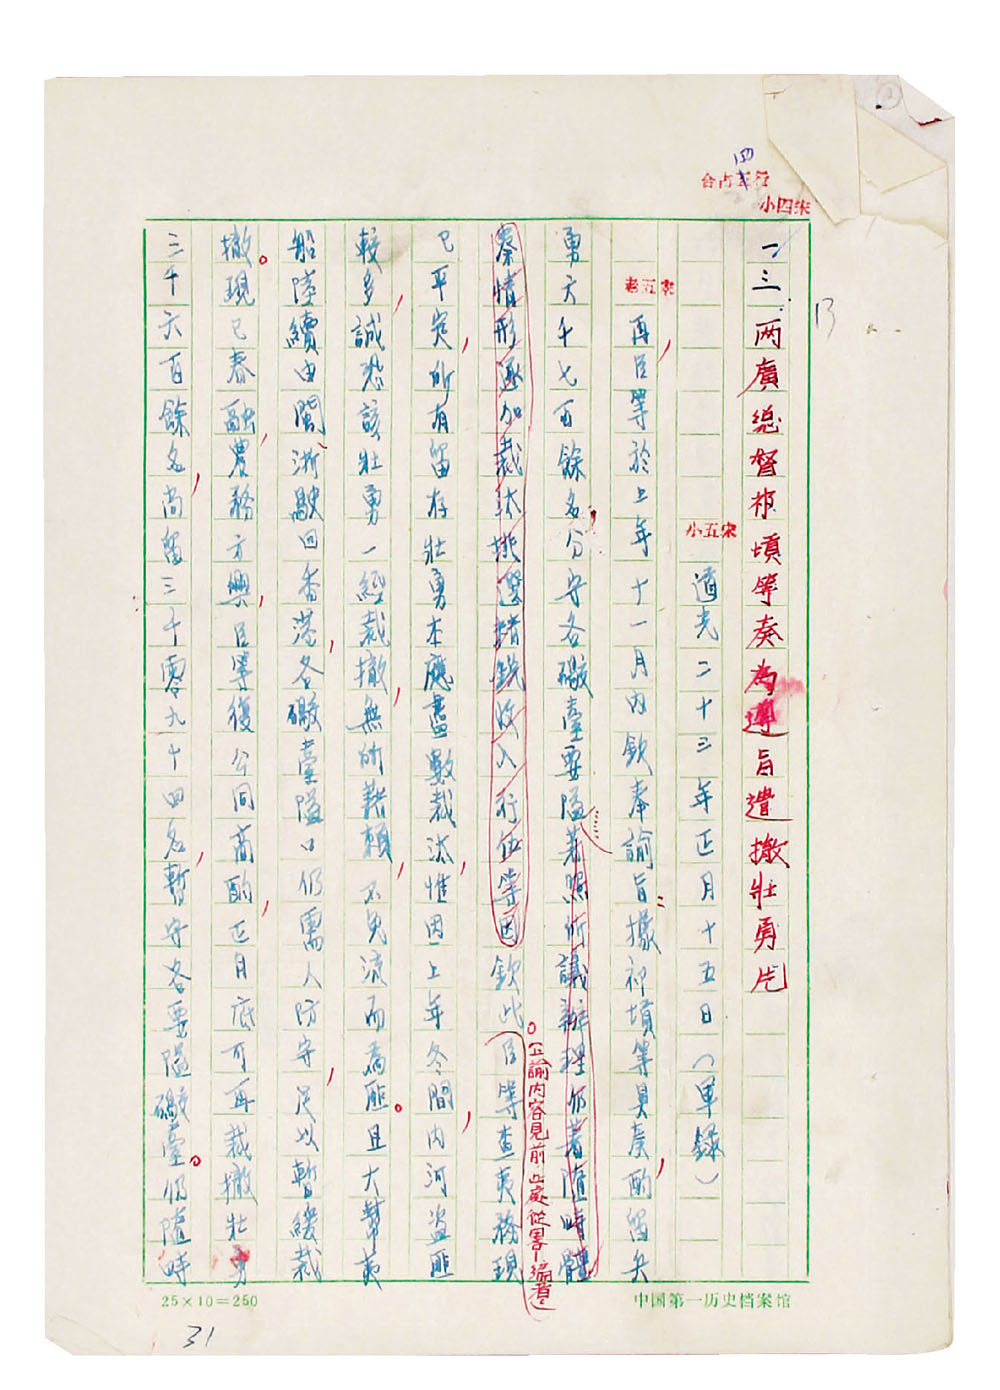 ②
150
合占五行
小四宋
一三 两廣总督祁墳等奏為遵旨遣撤壯勇片
13
小五宋
道光二十三年正月十五日(軍録)
老五宋
再,臣等於上年十一月内欽奉諭旨:據祁墳等具奏,酌留兵
勇六千七百餘名,分守各礮臺要隘,著照所議辦理,仍著隨時體
察情形,逐加裁汰,挑選精銳收入行伍等因。欽此。臣等查夷務現
(上諭内容見前,此處從畧—編者)
已平定,所有留存壯勇本應盡數裁汰,惟因上年冬間,内河盗匪
較多,誠恐該壯勇一經裁撤,無所藉賴,不免流而為匪。且大幫夷
船陸續由閩、浙駛回香港,各礮臺隘口仍需人防守,是以暫緩裁
撤。現已春融,農務方興,臣等復公同商酌,正月底可再裁撤壯勇
三千六百餘名,尚留三千零九十四名,暫守各要隘礮臺。仍隨時
25×10=250
中国第一历史档案馆
31